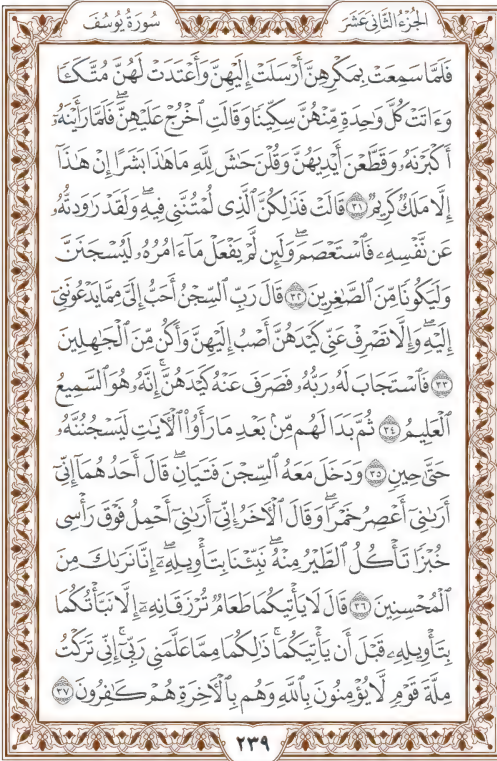 سُورَةُ يُوسُفَ
الجُزْءُ الثَّانِي عَشَرَ
فَلَمَّا سَمِعَتْ بِمَكْرِهِنَّ أَرْسَلَتْ إِلَيْهِنَّ وَأَعْتَدَتْ لَهُنَّ مُتَّكَـًٔا
وَءَاتَتْ كُلَّ وَٰحِدَةٍ مِّنْهُنَّ سِكِّينًا وَقَالَتِ ٱخْرُجْ عَلَيْهِنَّ ۖ فَلَمَّا رَأَيْنَهُۥٓ
أَكْبَرْنَهُۥ وَقَطَّعْنَ أَيْدِيَهُنَّ وَقُلْنَ حَٰشَ لِلَّهِ مَا هَٰذَا بَشَرًا إِنْ هَٰذَآ
إِلَّا مَلَكٌ كَرِيمٌ ٣١ قَالَتْ فَذَٰلِكُنَّ ٱلَّذِى لُمْتُنَّنِى فِيهِ ۖ وَلَقَدْ رَٰوَدتُّهُۥ
عَن نَّفْسِهِۦ فَٱسْتَعْصَمَ ۖ وَلَئِن لَّمْ يَفْعَلْ مَآ ءَامُرُهُۥ لَيُسْجَنَنَّ
وَلَيَكُونًا مِّنَ ٱلصَّٰغِرِينَ ٣٢ قَالَ رَبِّ ٱلسِّجْنُ أَحَبُّ إِلَىَّ مِمَّا يَدْعُونَنِىٓ
إِلَيْهِ ۖ وَإِلَّا تَصْرِفْ عَنِّى كَيْدَهُنَّ أَصْبُ إِلَيْهِنَّ وَأَكُن مِّنَ ٱلْجَٰهِلِينَ
٣٣ فَٱسْتَجَابَ لَهُۥ رَبُّهُۥ فَصَرَفَ عَنْهُ كَيْدَهُنَّ ۚ إِنَّهُۥ هُوَ ٱلسَّمِيعُ
ٱلْعَلِيمُ ٣٤ ثُمَّ بَدَا لَهُم مِّنۢ بَعْدِ مَا رَأَوُا۟ ٱلْءَايَٰتِ لَيَسْجُنُنَّهُۥ
حَتَّىٰ حِينٍ ٣٥ وَدَخَلَ مَعَهُ ٱلسِّجْنَ فَتَيَانِ ۖ قَالَ أَحَدُهُمَآ إِنِّىٓ
أَرَىٰنِىٓ أَعْصِرُ خَمْرًا ۖ وَقَالَ ٱلْءَاخَرُ إِنِّىٓ أَرَىٰنِىٓ أَحْمِلُ فَوْقَ رَأْسِى
خُبْزًا تَأْكُلُ ٱلطَّيْرُ مِنْهُ ۖ نَبِّئْنَا بِتَأْوِيلِهِۦٓ ۖ إِنَّا نَرَىٰكَ مِنَ
ٱلْمُحْسِنِينَ ٣٦ قَالَ لَا يَأْتِيكُمَا طَعَامٌ تُرْزَقَانِهِۦٓ إِلَّا نَبَّأْتُكُمَا
بِتَأْوِيلِهِۦ قَبْلَ أَن يَأْتِيَكُمَا ۚ ذَٰلِكُمَا مِمَّا عَلَّمَنِى رَبِّىٓ ۚ إِنِّى تَرَكْتُ
مِلَّةَ قَوْمٍ لَّا يُؤْمِنُونَ بِٱللَّهِ وَهُم بِٱلْءَاخِرَةِ هُمْ كَٰفِرُونَ ٣٧
٢٣٩